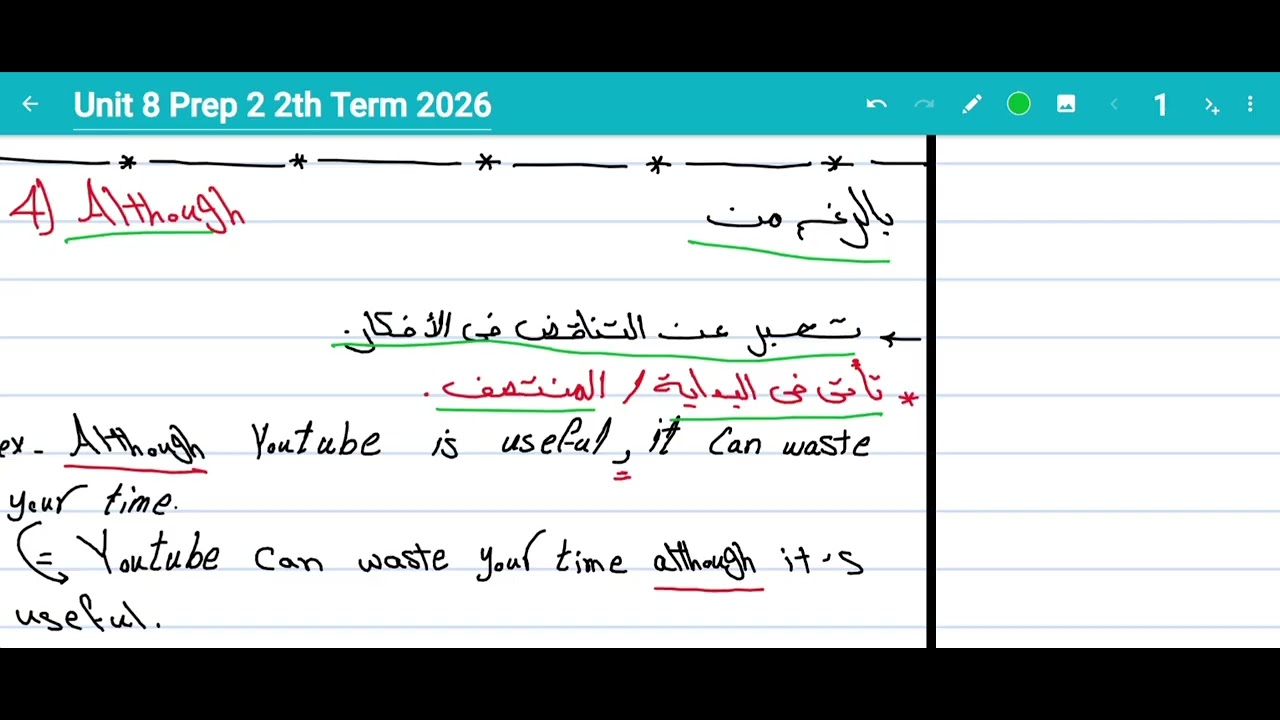 Unit 8 Prep 2 2th Term 2026
1
4) Although بالرغم من
← تعبير عن التناقض فى الأفكار.
* تأتى فى البداية / المنتصف.
ex- Although Youtube is useful, it can waste
your time.
= Youtube can waste your time although it's
useful.